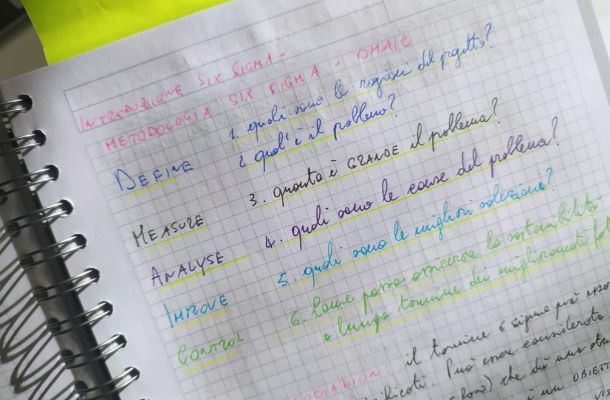 INTRODUZIONE SIX SIGMA -
METODOLOGIA SIX SIGMA - DMAIC
DEFINE 1. quali sono le ragioni del progetto?
2. qual'è il problema?
MEASURE 3. quanto è GRANDE il problema?
ANALYSE 4. quali sono le cause del problema?
IMPROVE 5. quali sono le migliori soluzioni?
CONTROL 6. Come posso assicurare la sostenibilità
a lungo termine dei miglioramenti
il termine 6 sigma può
Può essere considerato
che dà
un OBIETT